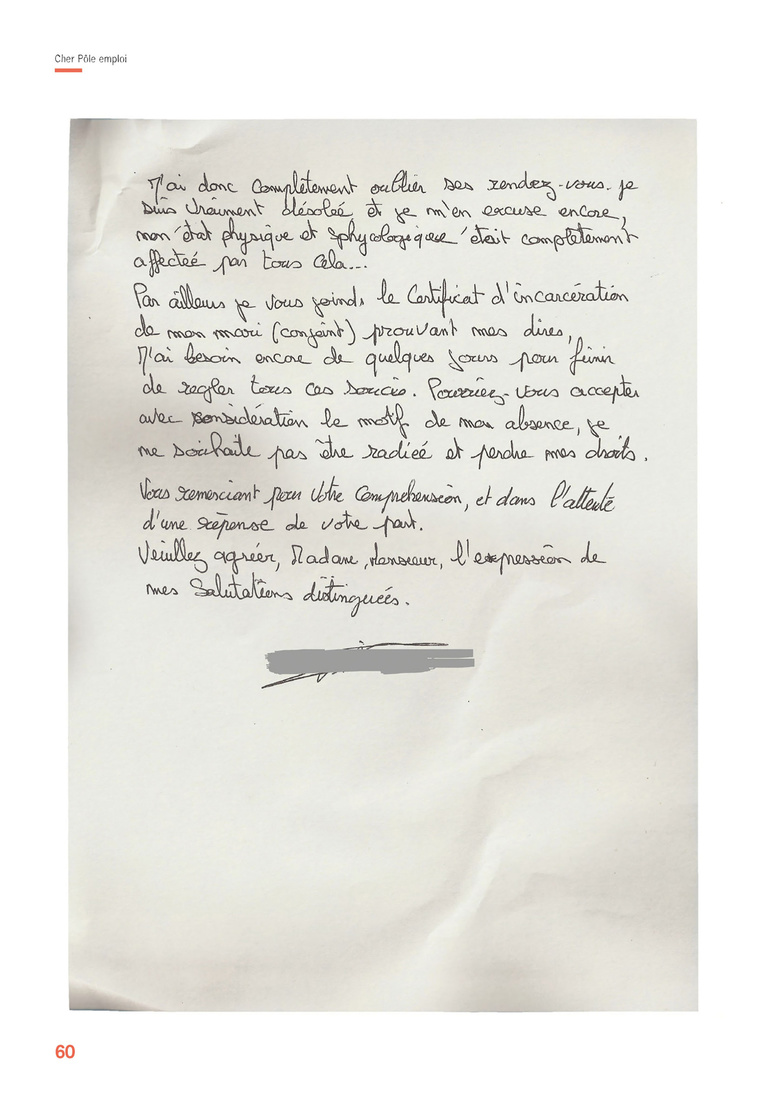 Cher Pôle emploi
J'ai donc Complètement oublier ses rendez-vous. je
suis vraiment désoleé et je m'en excuse encore,
mon état physique et sphycologiquee était complètement
affecteé par tous Cela...
Par ailleurs je vous joinds le Certificat d'incarcération
de mon mari (conjoint) prouvant mes dires,
J'ai besoin encore de quelques jours pour finir
de regler tous ces soucis. Pourriez-vous accepter
avec considération le motif de mon absence, je
ne souhaite pas être radieé et perdre mes droits.
Vous remerciant pour Votre Compréhension, et dans l'attente
d'une réponse de votre part.
Veuillez agréer, Madame, Monsieur, l'expression de
mes Salutations distinguées.
60